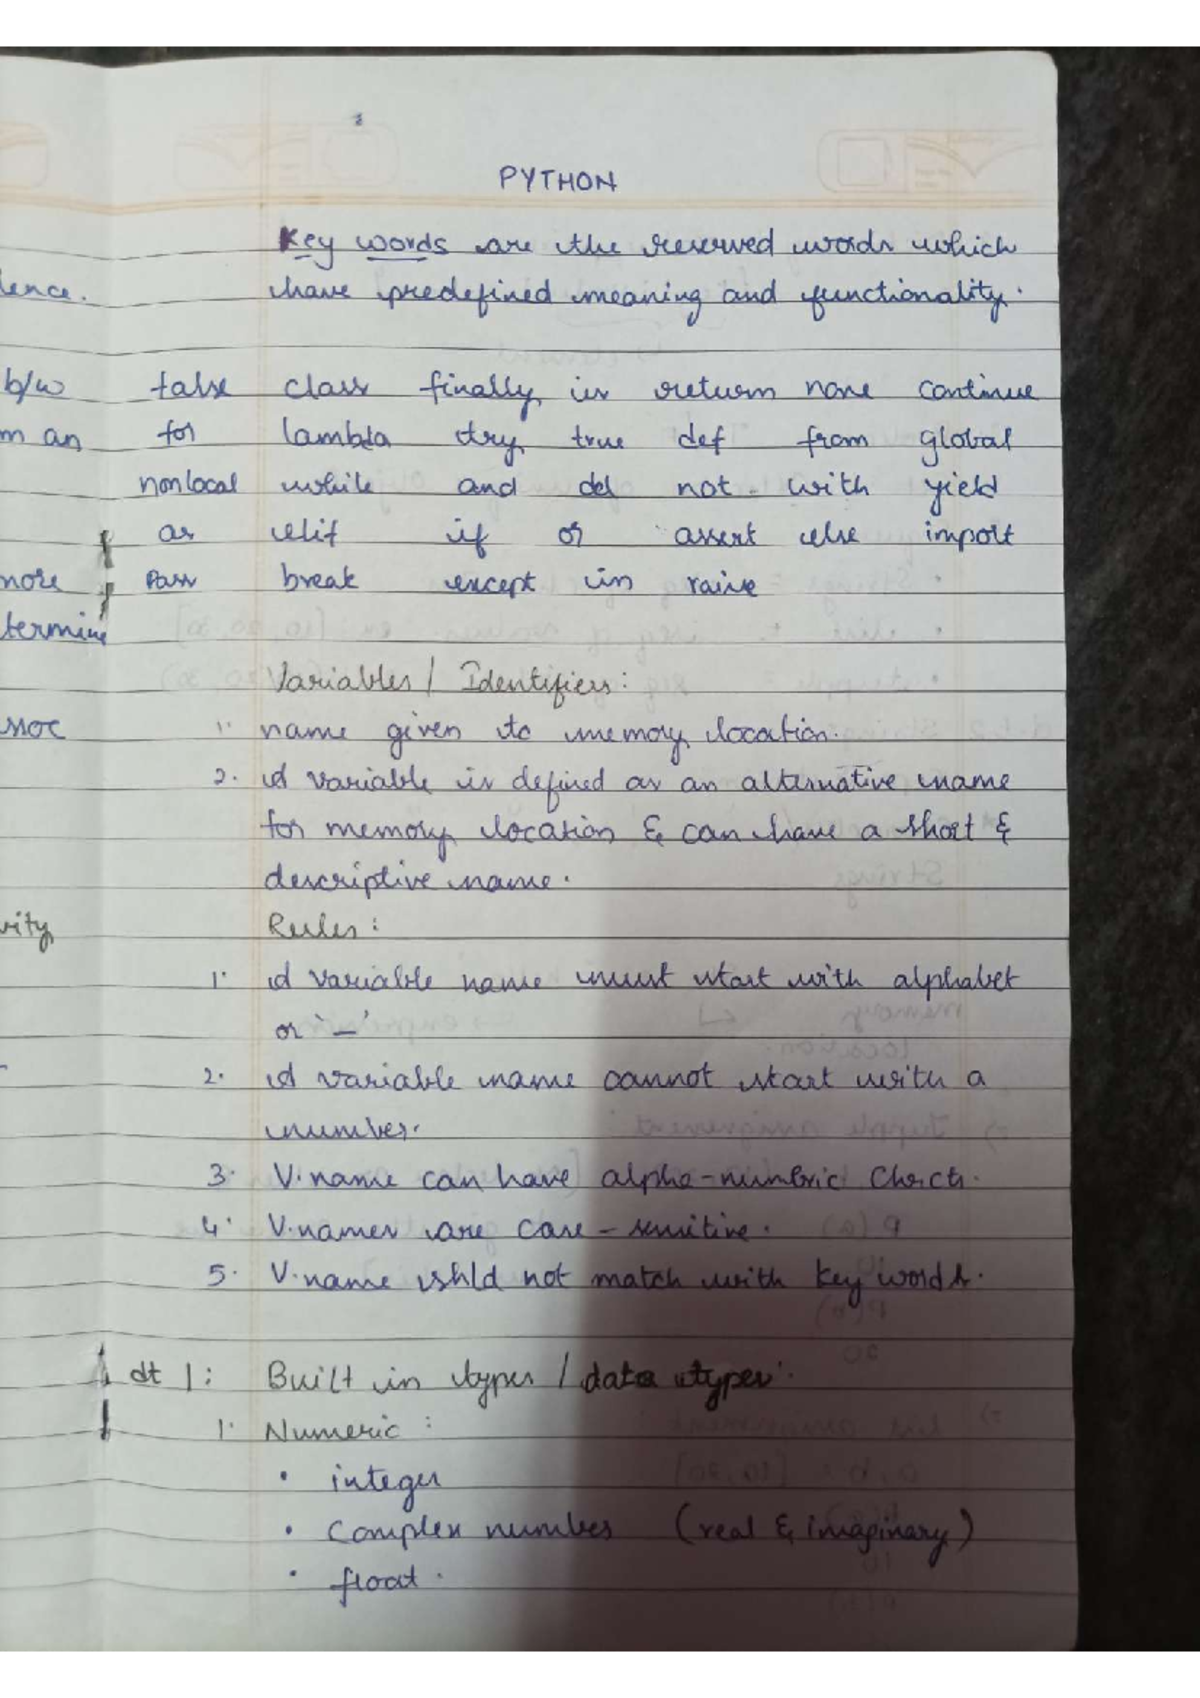 PYTHON
Key words are the reserved words which
lence. have predefined meaning and functionality.
b/w false class finally is return none continue
m an for lambda try true def from global
nonlocal while and del not with yield
as elif if or assert else import
more pass break except in raise
termine
Variables / Identifiers:
1. name given to memory location.
2. A variable is defined as an alternative name
for memory location & can have a short &
descriptive name.
vity Rules:
1. A variable name must start with alphabet
or '_'
2. A variable name cannot start with a
number.
3. V.name can have alpha-numeric
4. V.names are case-sensitive.
5. V.name shld not match with key words.
dt 1: Built in types / data types.
1. Numeric:
• integer
• Complex number (real & imaginary)
• float.